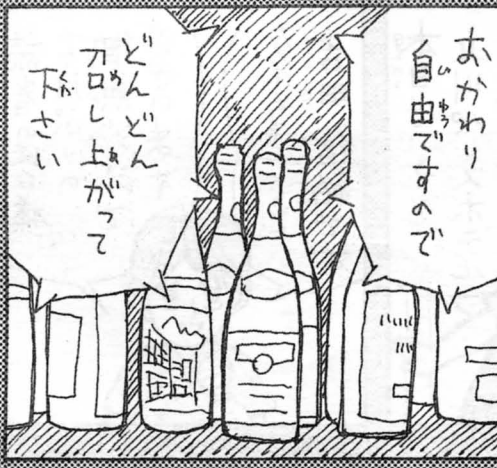 おかわり
自由ですので
どんどん
召し上がって
下さい